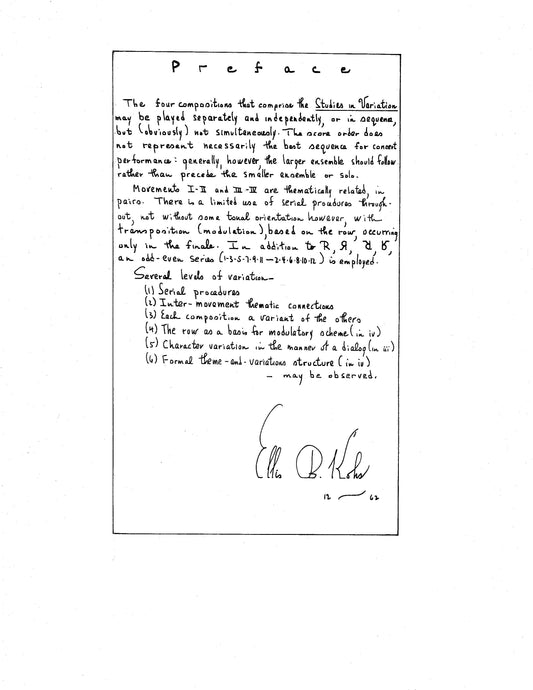 Preface
The four compositions that comprise the Studies in Variation
may be played separately and independently, or in sequence,
but (obviously) not simultaneously. The score order does
not represent necessarily the best sequence for concert
performance: generally, however, the larger ensemble should follow
rather than precede the smaller ensemble or solo.
Movements I-II and III-IV are thematically related, in
pairs. There is a limited use of serial procedures through-
out, not without some tonal orientation however, with
transposition (modulation), based on the row, occurring
only in the finale. In addition to R, Я,
an odd-even series (1-3-5-7-9-11—2-4-6-8-10-12) is employed.
Several levels of variation—
(1) Serial procedures
(2) Inter-movement thematic connections
(3) Each composition a variant of the others
(4) The row as a basis for modulatory scheme (in iv)
(5) Character variation in the manner of a dialog (in iii)
(6) Formal theme-and-variations structure (in iv)
— may be observed.
Ellis B. Kohs
12 — 62